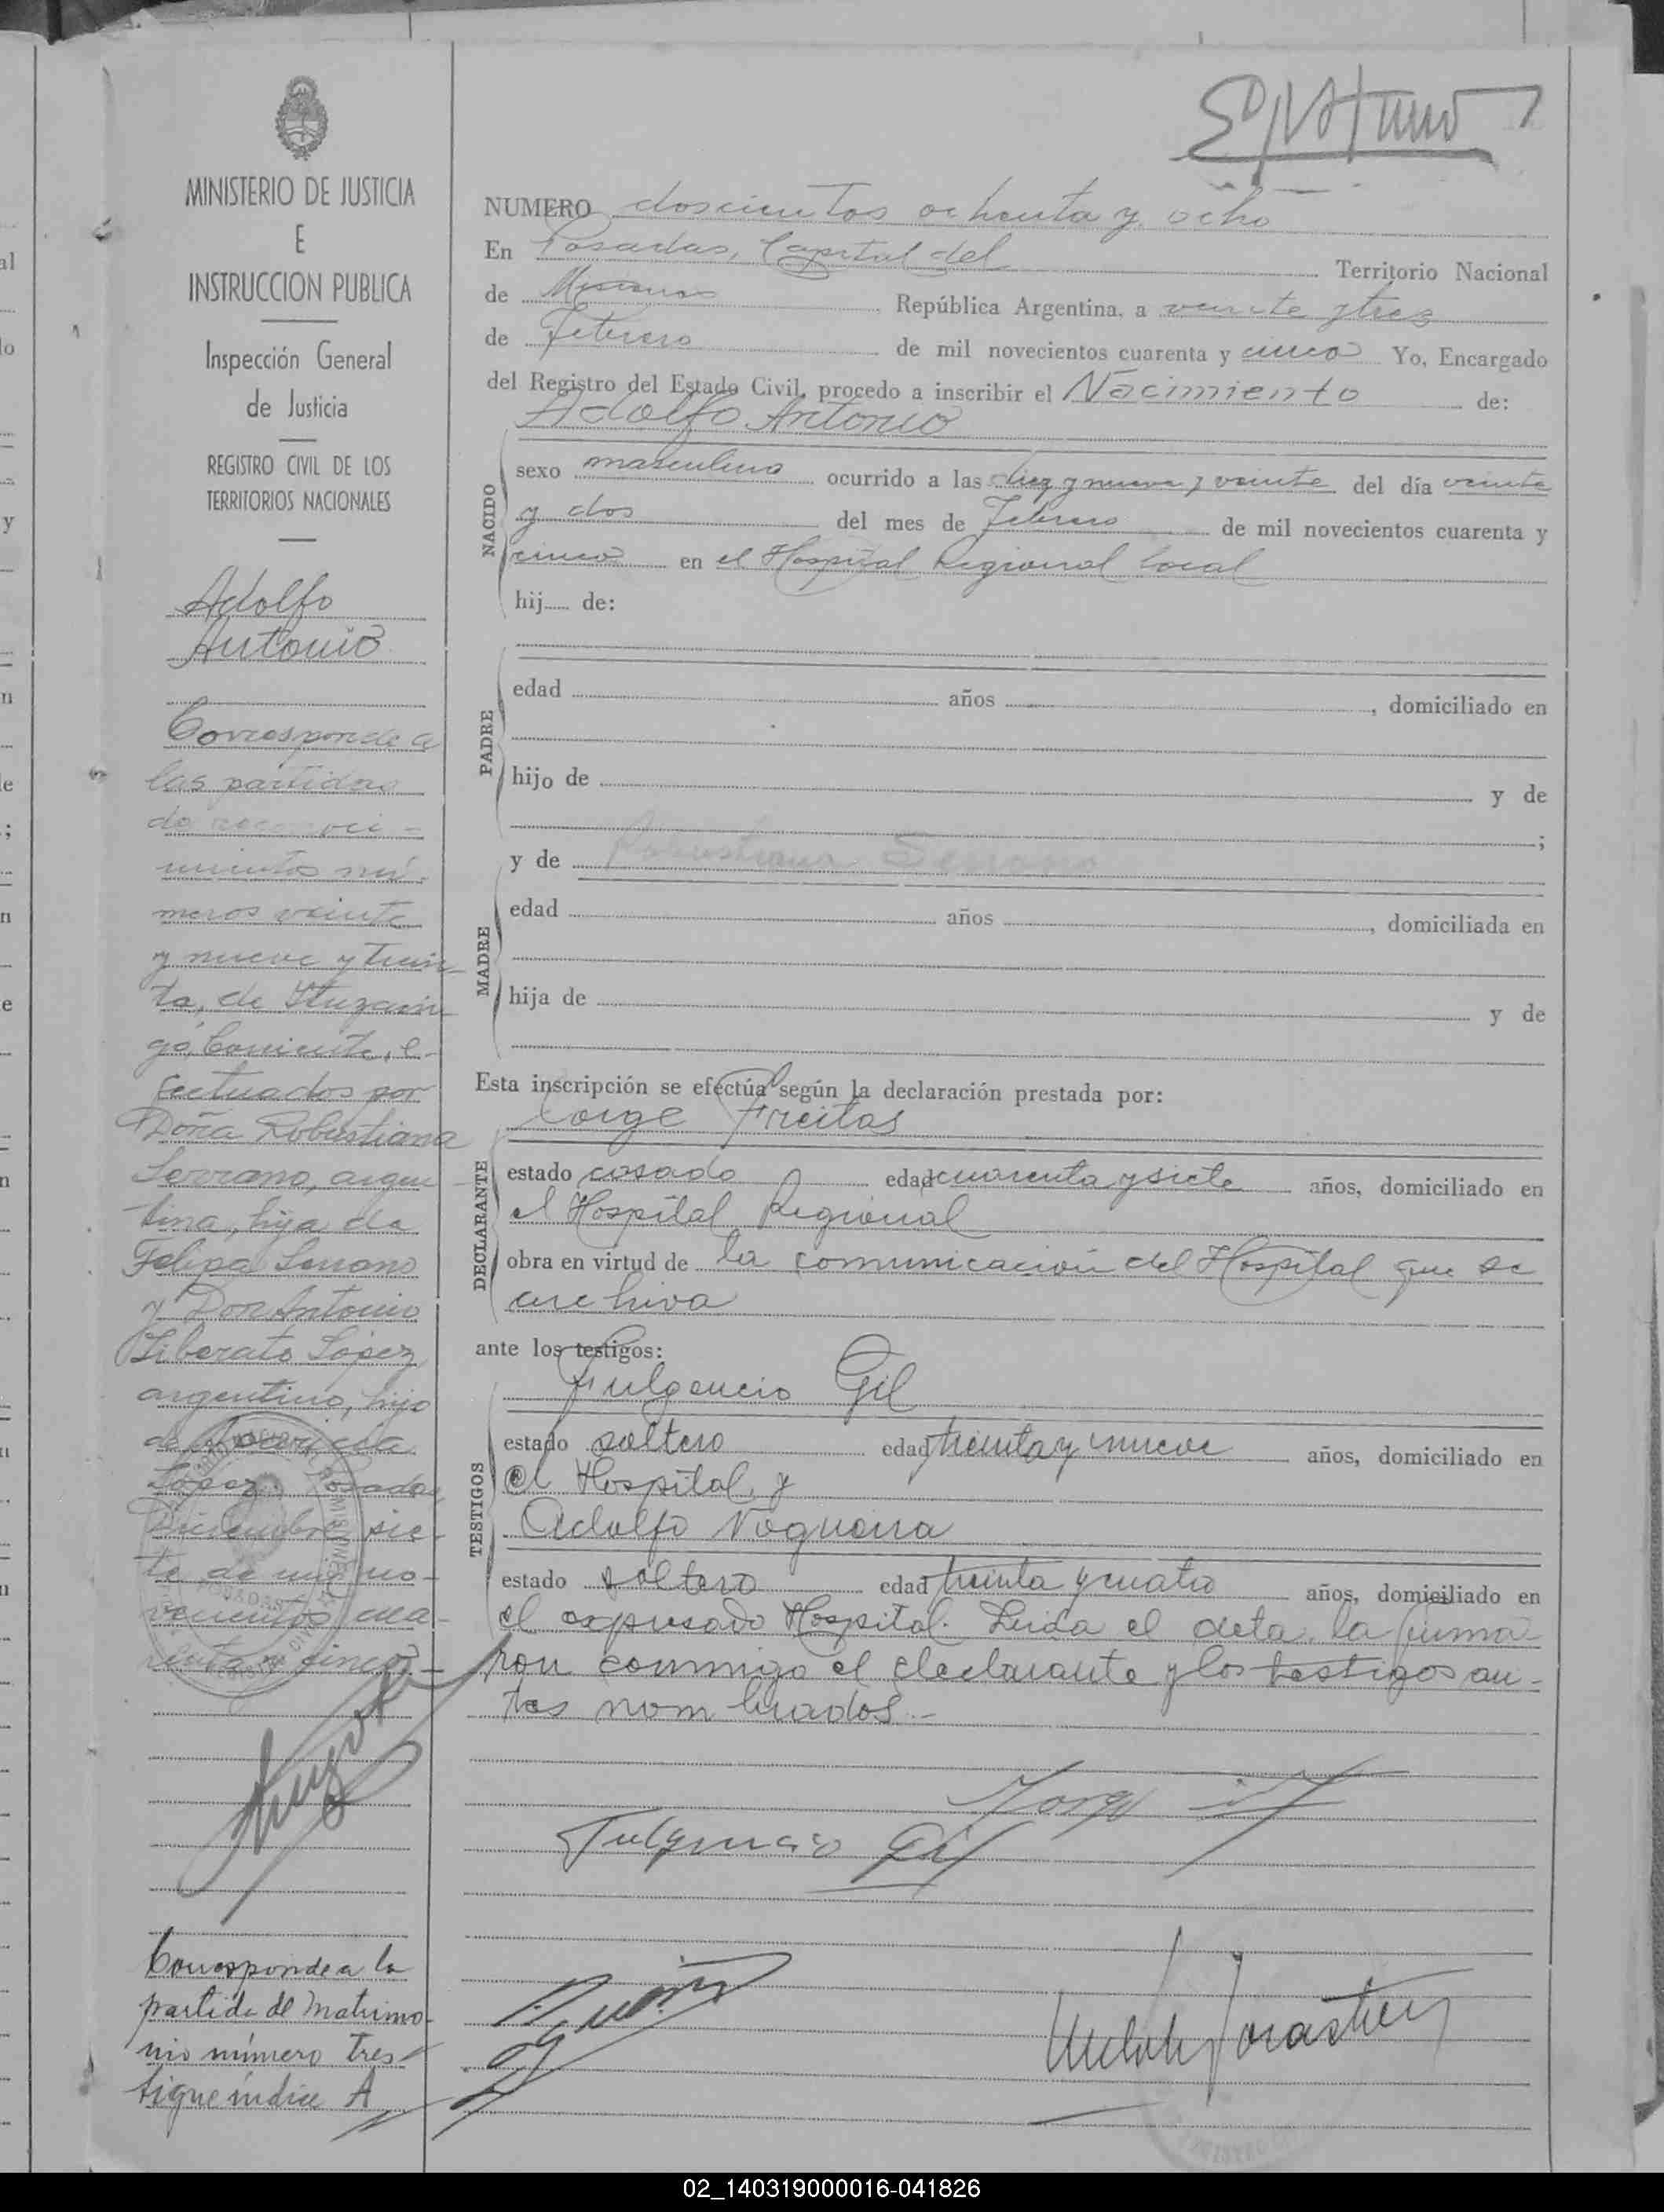 MINISTERIO DE JUSTICIA
E
INSTRUCCION PUBLICA
Inspección General
de Justicia
REGISTRO CIVIL DE LOS
TERRITORIOS NACIONALES
Adolfo
Antonio
Corresponde a
las partidas
de reconoci-
mientos nú-
meros veinte
y nueve y trein-
ta, de Ituzain-
gó, Corrientes, e-
fectuados por
Doña Robustiana
Serrano, argen-
tina, hija de
Felipa Serrano
y Don Antonio
Liberato López
argentino, hijo
de
López. Posadas
Diciembre sie-
te de mil no-
vecientos cua-
renta y cinco
Corresponde a la
partida de Matrimo-
nio número tres
sigue índice A
NUMERO doscientos ochenta y ocho
En Posadas, Capital del Territorio Nacional
de Misiones República Argentina, a veinte y tres
de Febrero de mil novecientos cuarenta y cinco Yo, Encargado
del Registro del Estado Civil, procedo a inscribir el Nacimiento de:
Adolfo Antonio
NACIDO
sexo masculino ocurrido a las diez y nueve y veinte del día veinte
y dos del mes de Febrero de mil novecientos cuarenta y
cinco en el Hospital Regional local
hij...... de:
PADRE
edad años , domiciliado en
hijo de y de
;
y de Robustiana Serrano
MADRE
edad años , domiciliada en
hija de y de
Esta inscripción se efectúa según la declaración prestada por:
Jorge Freitas
DECLARANTE
estado casado edad cuarenta y siete años, domiciliado en
el Hospital Regional
obra en virtud de la comunicación del Hospital que se
archiva
ante los testigos:
Fulgencio Gil
TESTIGOS
estado soltero edad treinta y nueve años, domiciliado en
el Hospital y
Adolfo Noguera
estado soltero edad treinta y cuatro años, domiciliado en
el expresado Hospital. Leida el acta, la firma-
ron conmigo el declarante y los testigos an-
tes nombrados.-
Jorge
Fulgencio Gil
02_140319000016-041826